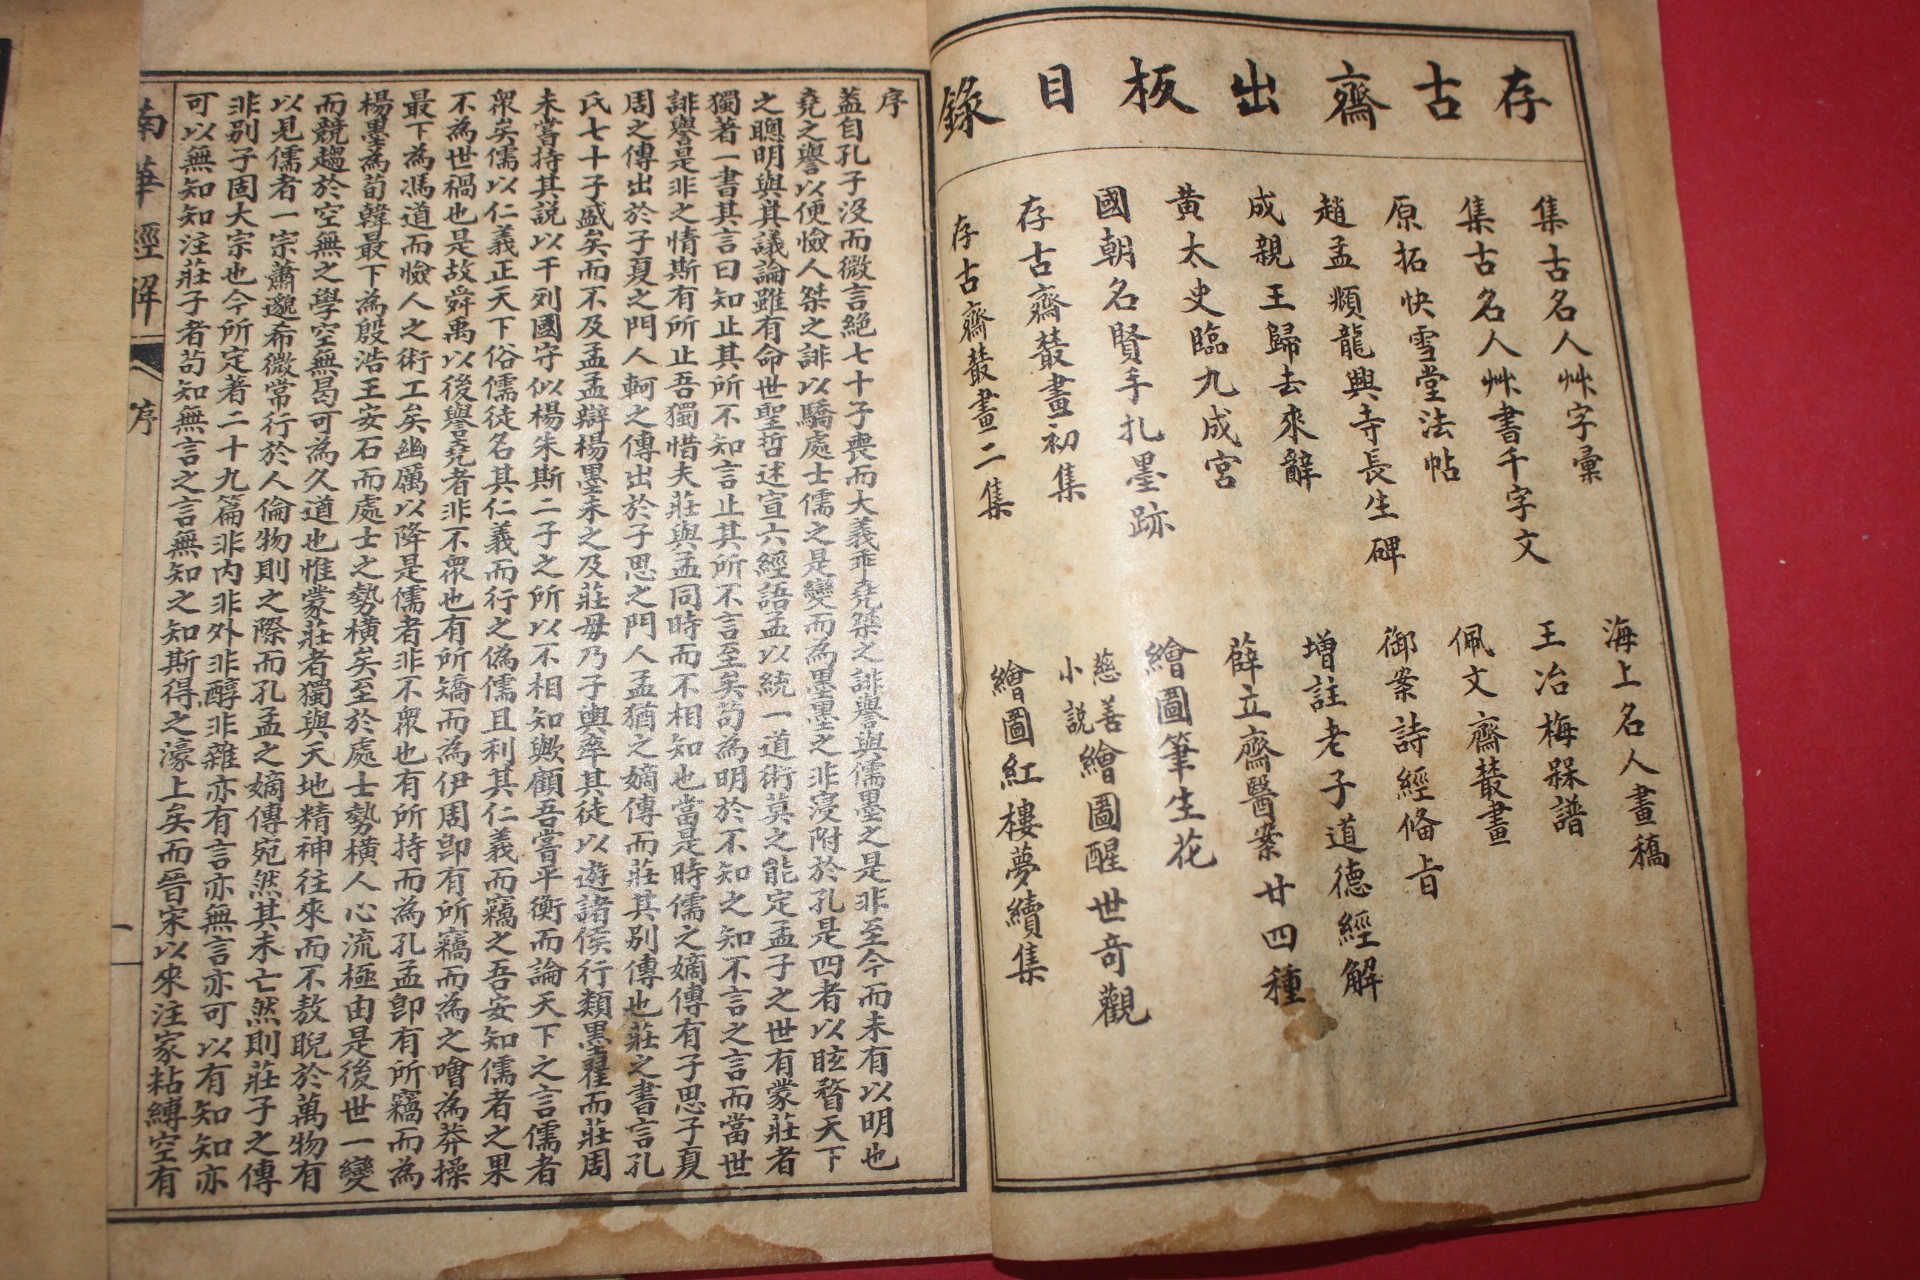 存古齋出板目錄
集古名人艸字彙
集古名人艸書千字文
原拓快雪堂法帖
趙孟頫龍興寺長生碑
成親王歸去來辭
黄太史臨九成宮
國朝名賢手扎墨跡
存古齋叢畫初集
存古齋叢畫二集
海上名人畫稿
王冶梅槑譜
佩文齋叢畫
御案詩經俻旨
增註老子道德經解
薛立齋醫案廿四種
繪圖筆生花
慈善小説繪圖醒世奇觀
繪圖紅樓夢續集
序
蓋自孔子没而微言絶七十子喪而大義乖堯桀之誹譽與儒墨之是非至今而未有以明也
堯之譽以便憸人桀之誹以驕處士儒之是變而為墨墨之非寝附於孔是四者以眩瞀天下
之聰明與其議論雖有命世聖哲述宣六經語孟以統一道術莫之能定孟子之世有蒙莊者
獨著一書其言曰知止其所不知言止其所不言至矣苟為明於不知之知不言之言而當世
誹譽是非之情斯有所止吾獨惜夫莊與孟同時而不相知也當是時儒之嫡傳有子思子夏
周之傳出於子夏之門人軻之傳出於子思之門人孟猶之嫡傳而莊其别傳也莊之書言孔
氏七十子盛矣而不及孟孟辯楊墨未之及莊毋乃子輿率其徒以遊諸侯行類墨翟而莊周
未嘗持其説以干列國守似楊朱斯二子之所以不相知歟顧吾嘗平衡而論天下之言儒者
衆矣儒以仁義正天下俗儒徒名其仁義而行之偽儒且利其仁義而竊之吾安知儒者之果
不為世禍也是故舜禹以後譽堯者非不衆也有所矯而為伊周卽有所竊而為之噲為莽操
最下為馮道而憸人之術工矣幽厲以降是儒者非不衆也有所持而為孔孟卽有所竊而為
楊墨為荀韓最下為殷浩王安石而處士之勢横矣至於處士勢横人心流極由是後世一變
而競趨於空無之學空無曷可為久道也惟蒙莊者獨與天地精神往來而不敖睨於萬物有
以見儒者一宗蕭邈希微常行於人倫物則之際而孔孟之嫡傳宛然其未亡然則莊子之傳
非别子固大宗也今所定著二十九篇非内非外非醇非雜亦有言亦無言亦可以有知知亦
可以無知知注莊子者苟知無言之言無知之知斯得之濠上矣而晉宋以來注家粘縛空有
南華經解
序
一